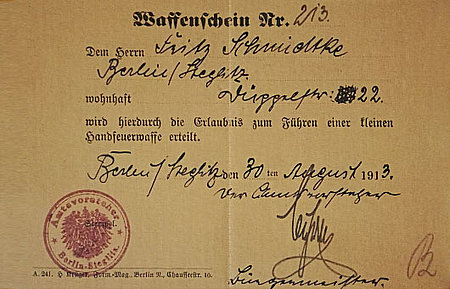 Waffenschein Nr. 213.
Dem Herrn Fritz Schmidtke
Berlin/Steglitz
wohnhaft Düppelstr. 22.
wird hierdurch die Erlaubnis zum Führen einer kleinen
Handfeuerwaffe erteilt.
Berlin/Steglitz den 30 ten August 1913.
Der Amtsvorsteher
Amtsvorsteher
Stempel.
Berlin-Steglitz.
Bürgermeister.
B
A. 241. H. Krüger, Form.-Mag., Berlin N., Chausseestr. 16.